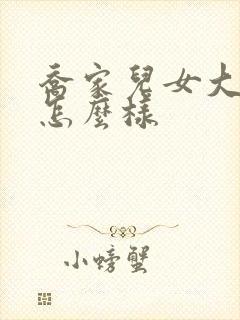 喬家兒女大
怎麼樣
小螃蟹